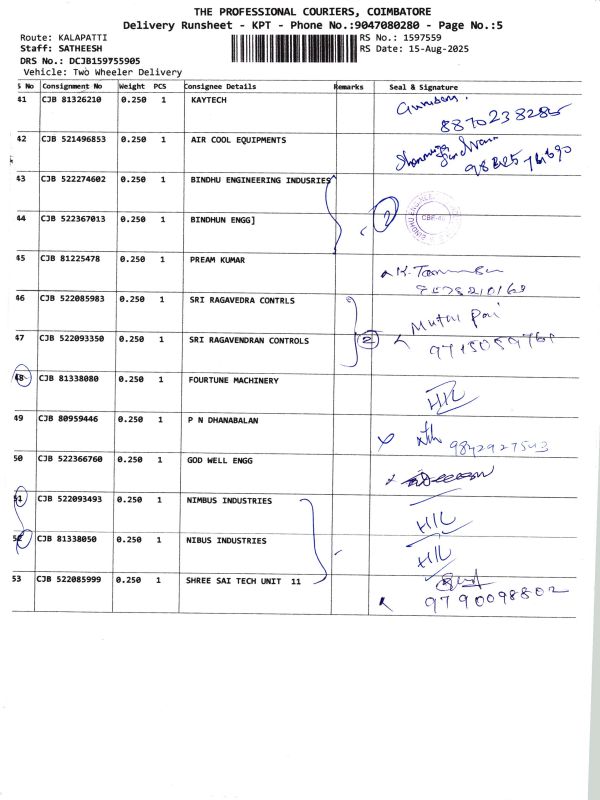 THE PROFESSIONAL COURIERS, COIMBATORE
Delivery Runsheet - KPT - Phone No.:9047080280 - Page No.:5
Route: KALAPATTI RS No.: 1597559
Staff: SATHEESH RS Date: 15-Aug-2025
DRS No.: DCJB159755905
Vehicle: Two Wheeler Delivery
S No Consignment No Weight PCS Consignee Details Remarks Seal & Signature
41 CJB 81326210 0.250 1 KAYTECH
8870238285
42 CJB 521496853 0.250 1 AIR COOL EQUIPMENTS
43 CJB 522274602 0.250 1 BINDHU ENGINEERING INDUSRIES
44 CJB 522367013 0.250 1 BINDHUN ENGG] 2
45 CJB 81225478 0.250 1 PREAM KUMAR
46 CJB 522085983 0.250 1 SRI RAGAVEDRA CONTRLS
47 CJB 522093350 0.250 1 SRI RAGAVENDRAN CONTROLS 2
48 CJB 81338080 0.250 1 FOURTUNE MACHINERY H/L
49 CJB 80959446 0.250 1 P N DHANABALAN
9842927543
50 CJB 522366760 0.250 1 GOD WELL ENGG
51 CJB 522093493 0.250 1 NIMBUS INDUSTRIES H/L
52 CJB 81338050 0.250 1 NIBUS INDUSTRIES H/L
53 CJB 522085999 0.250 1 SHREE SAI TECH UNIT 11
9790098802